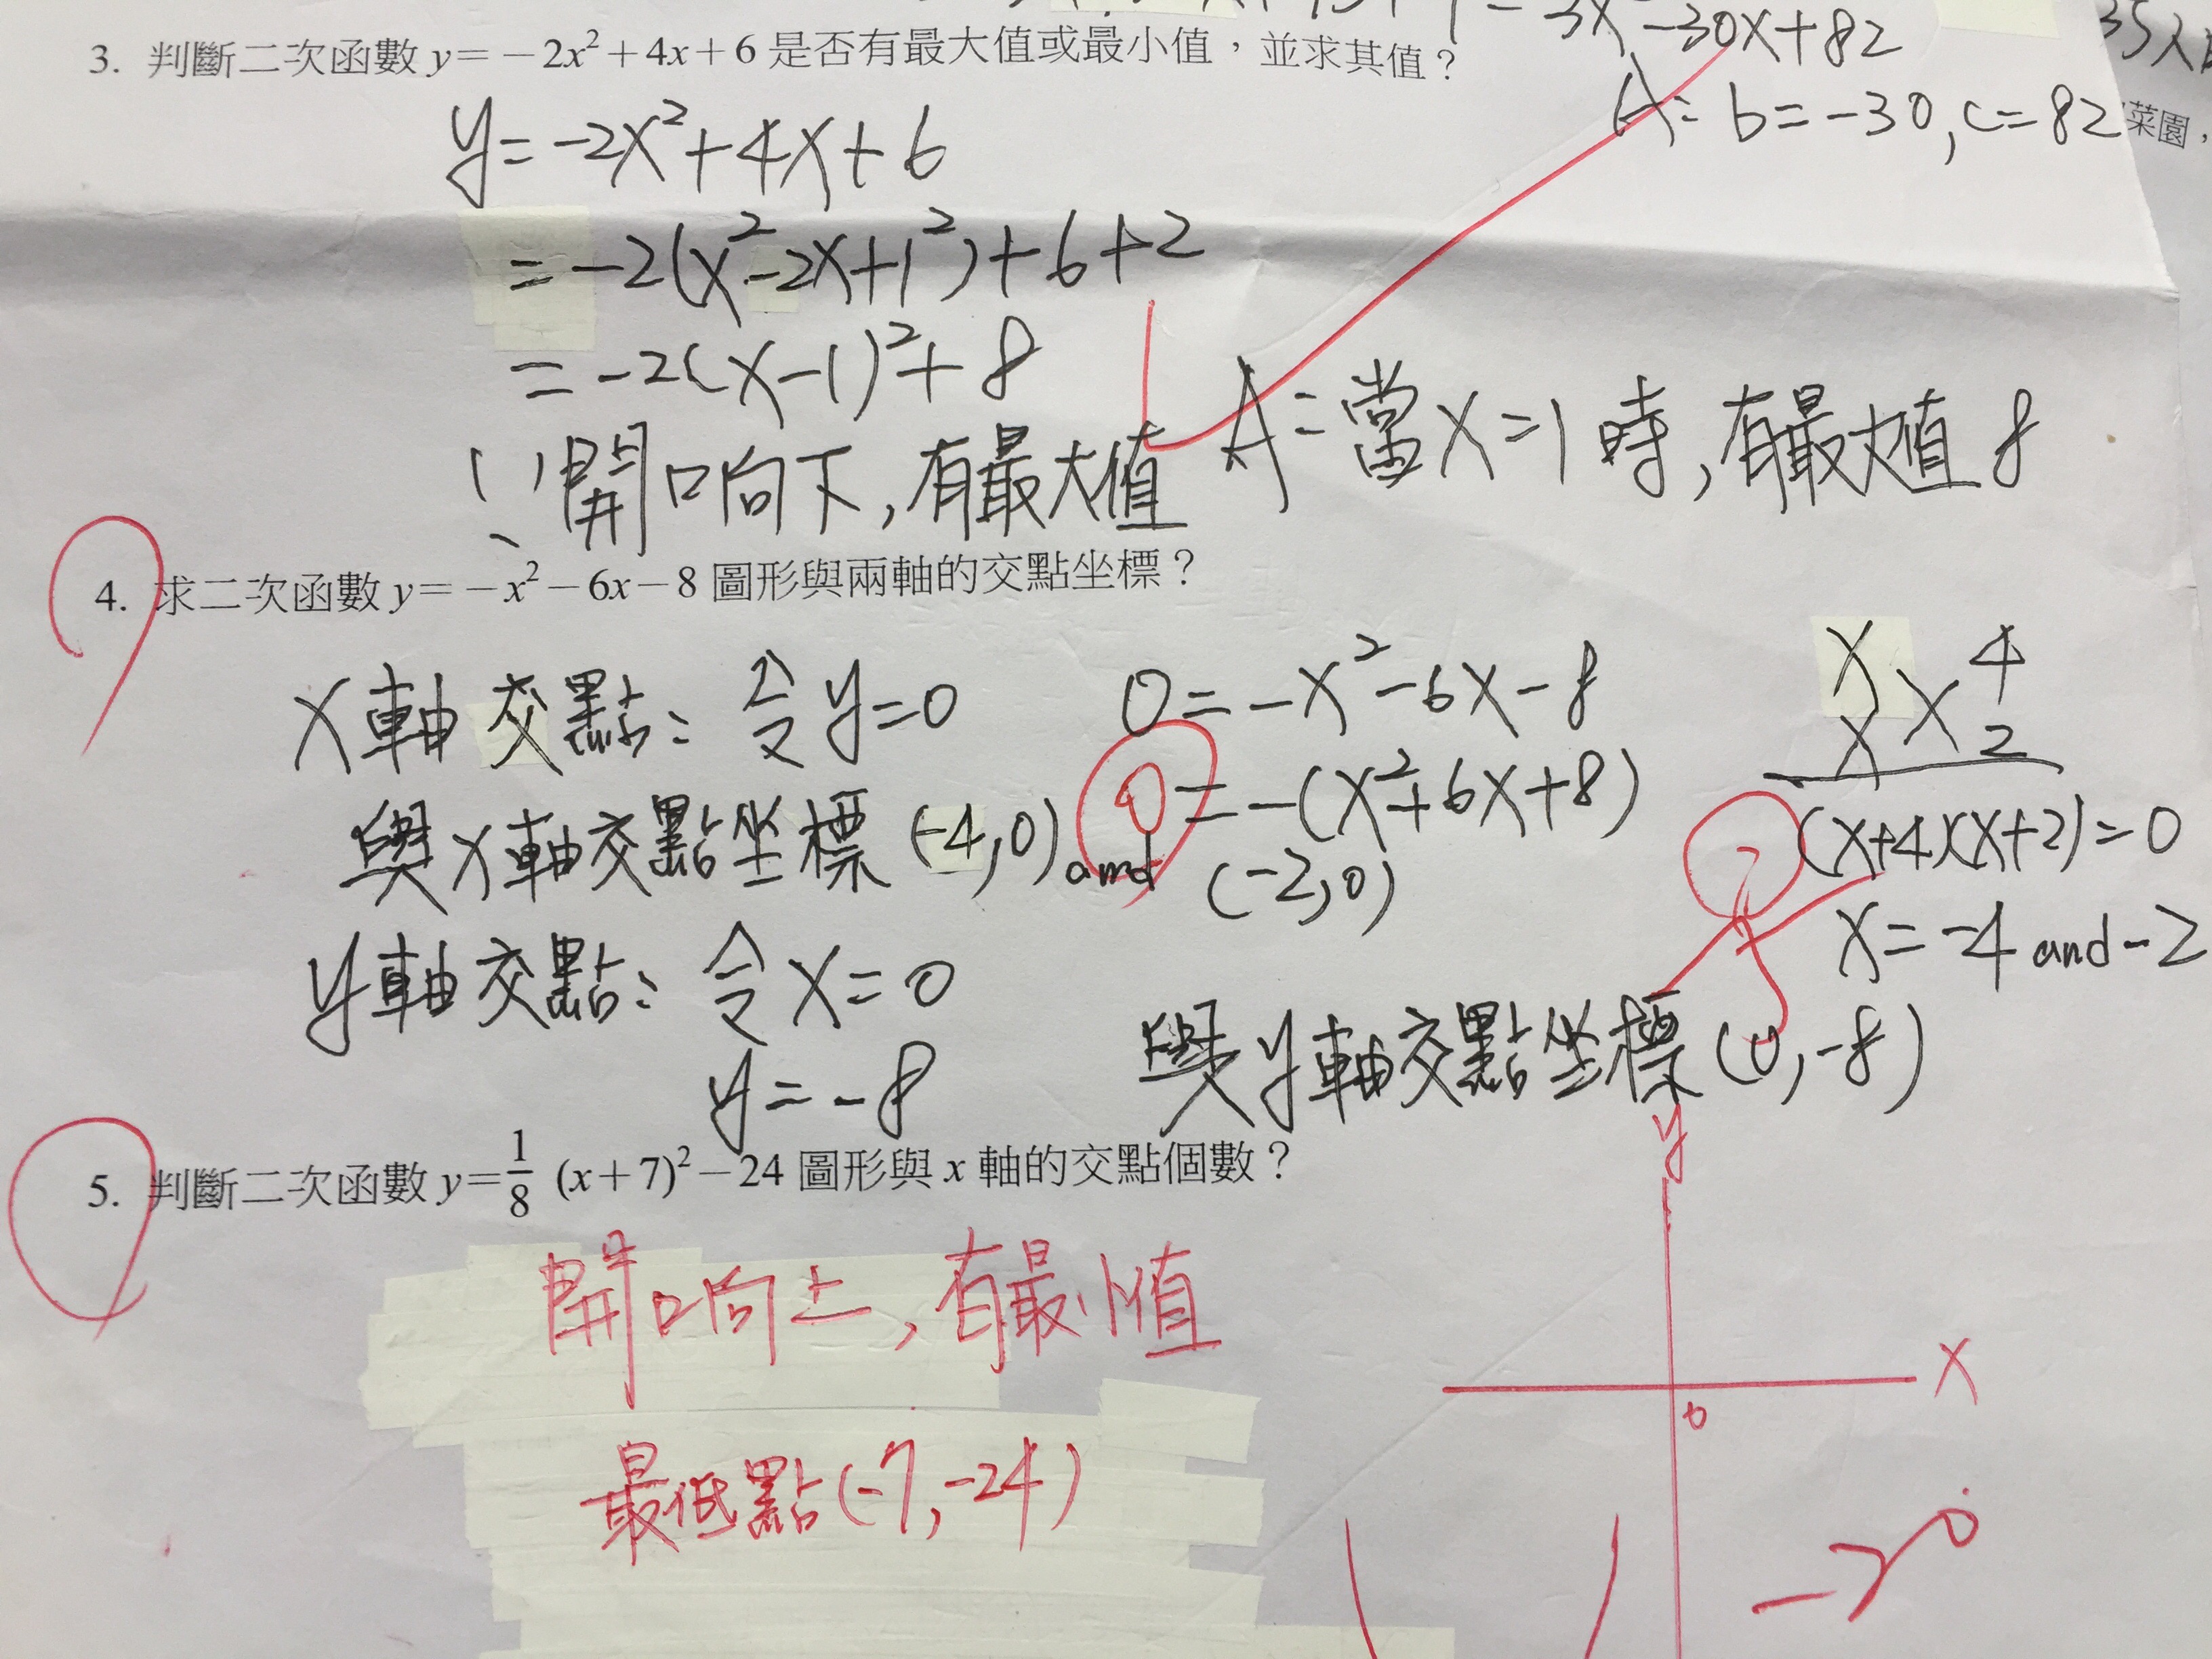 3x²-30x+82
3. 判斷二次函數 y=-2x²+4x+6 是否有最大值或最小值，並求其值？
A: b=-30, c=82
菜園，
y=-2x²+4x+6
=-2(x²-2x+1²)+6+2
=-2(x-1)²+8
∵開口向下,有最大值 A:當x=1時,有最大值8
4. 求二次函數 y=-x²-6x-8 圖形與兩軸的交點坐標？
x軸交點: 令y=0 0=-x²-6x-8
x 4
x 2
0=-(x²+6x+8)
(x+4)(x+2)=0
與x軸交點坐標 (-4,0) and (-2,0)
x=-4 and -2
y軸交點: 令x=0
y=-8
與y軸交點坐標(0,-8)
5. 判斷二次函數 y=1/8 (x+7)²-24 圖形與 x 軸的交點個數？
y
開口向上,有最小值
x
0
最低點(-7,-24)